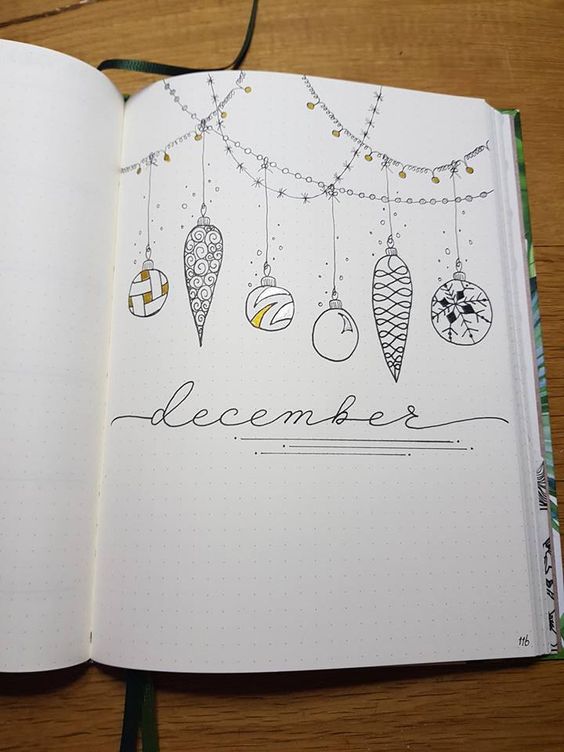 december
116